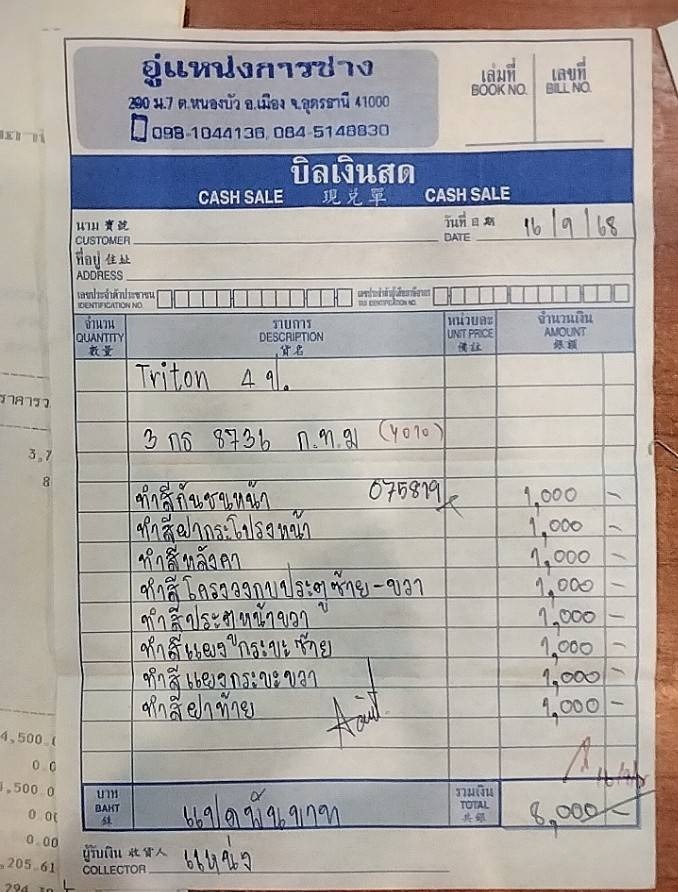 อู่แหน่งการช่าง
290 ม.7 ต.หนองบัว อ.เมือง จ.อุดรธานี 41000
098-1044136, 084-5148830
เล่มที่ เลขที่
BOOK NO. BILL NO.
บิลเงินสด
CASH SALE 現兌單 CASH SALE
นาม 寶號 วันที่ 日期 16/9/68
CUSTOMER DATE
ที่อยู่ 住址
ADDRESS
เลขประจำตัวประชาชน เลขประจำตัวผู้เสียภาษีอากร
IDENTIFICATION NO. TAX IDENTIFICATION NO.
จำนวน รายการ หน่วยละ จำนวนเงิน
QUANTITY DESCRIPTION UNIT PRICE AMOUNT
數量 貨名 備註 銀額
Triton 4 ป.
3 กธ 8736 ก.ท.ม (4010)
ทำสีกันชนหน้า 075819 1,000 -
ทำสีฝากระโปรงหน้า 1,000 -
ทำสีหลังคา 1,000 -
ทำสีโครงวงกบประตูซ้าย-ขวา 1,000 -
ทำสีประตูหน้าขวา 1,000 -
ทำสีแผงกระบะซ้าย 1,000 -
ทำสีแผงกระบะขวา 1,000 -
ทำสีฝาท้าย 1,000 -
บาท รวมเงิน
BAHT แปดพันบาท TOTAL 8,000 -
ผู้รับเงิน 收貨人 แหน่ง
COLLECTOR
ราคารว
3,7
8
4,500.0
0.0
,500.0
0.00
0.00
,205.61
294.39